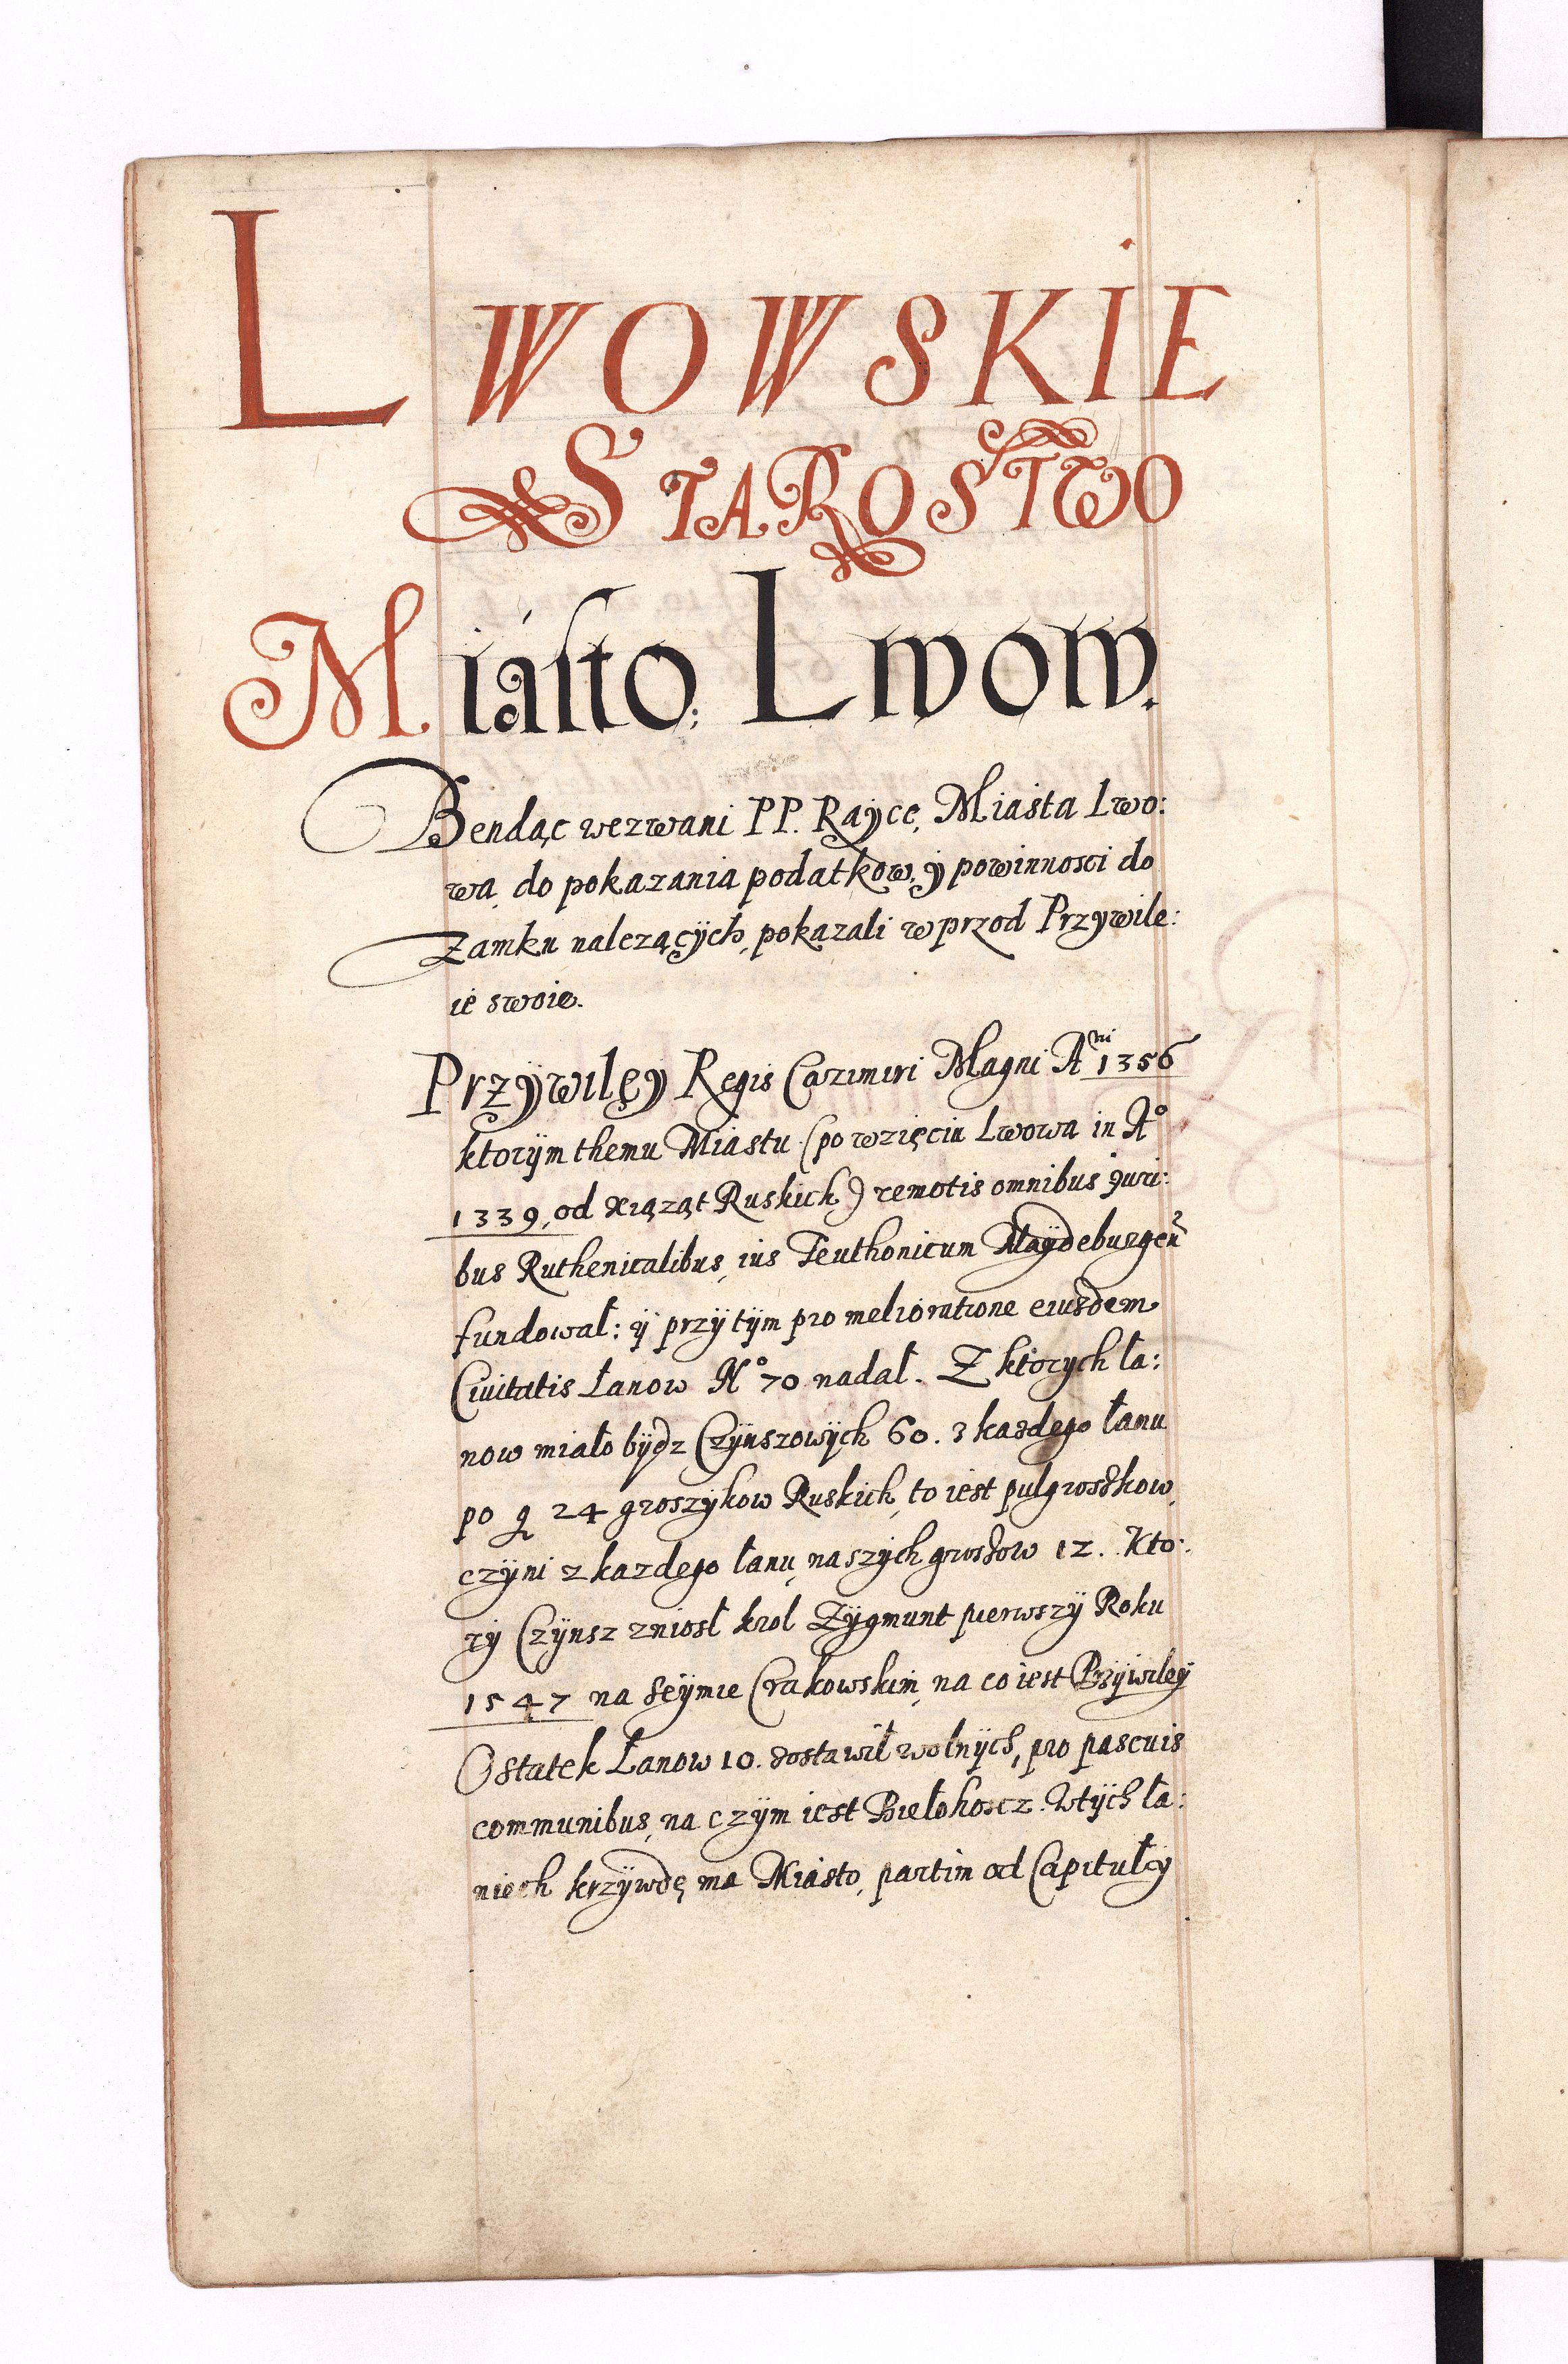 LWOWSKIE
STAROSTWO
Miásto: Lwow.
Bendąc wezwani PP. Rayce, Miasta Lwo:
wa, do pokazania podatkow, ÿ powinnosci do
Zamku nalezącÿch, pokazali w przod Przywile:
ie swoie.
Przÿwilęÿ Regis Cazimiri Magni Aⁿⁱ 1356
ktorÿm themu Miastu (po wzięciu Lwowa in A°
1339, od xiąząt Ruskich) remotis omnibus juri:
bus Ruthenicalibus, ius Teuthonicum Maÿdeburgen
fundował: ÿ przÿ tÿm pro melioratione eiusdem
Civitatis Łanow N° 70 nadał. Z ktorych ła:
now miało bÿdz Czÿnszowÿch 60. z kazdego łanu
po g 24 groszÿkow Ruskich, to iest pulgroszkow,
czÿni z kazdego łanu, naszÿch groszow 12. Kto:
rÿ Czÿnsz zniosł krol Zÿgmunt pierwszÿ Roku
1547 na seÿmie Crakowskim, na co iest Przÿwileÿ
Ostatek Łanow 10. zostawił wolnÿch, pro pascuis
communibus, na czÿm iest Biełohoscz. Wtÿch ła:
niech krzÿwdę ma Miasto, partim od Capitułÿ